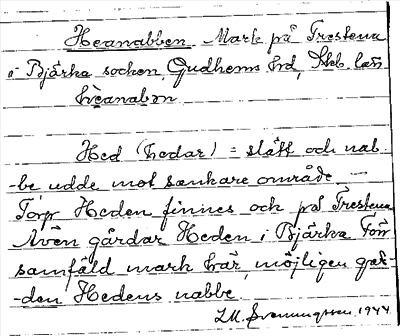 Heanabben Mark på Trestena
i Bjärka socken, Gudhems hd, Skb. län
hèanabɔn
Hed (hedar) = slätt och nab-
-be udde mot sankare område. —
Torp Heden finnes och på Trestena
Även gårdar Heden i Bjärka Före
samfäld mark här, möjligen går-
-den Hedens nabbe.
Svenungsson 1944